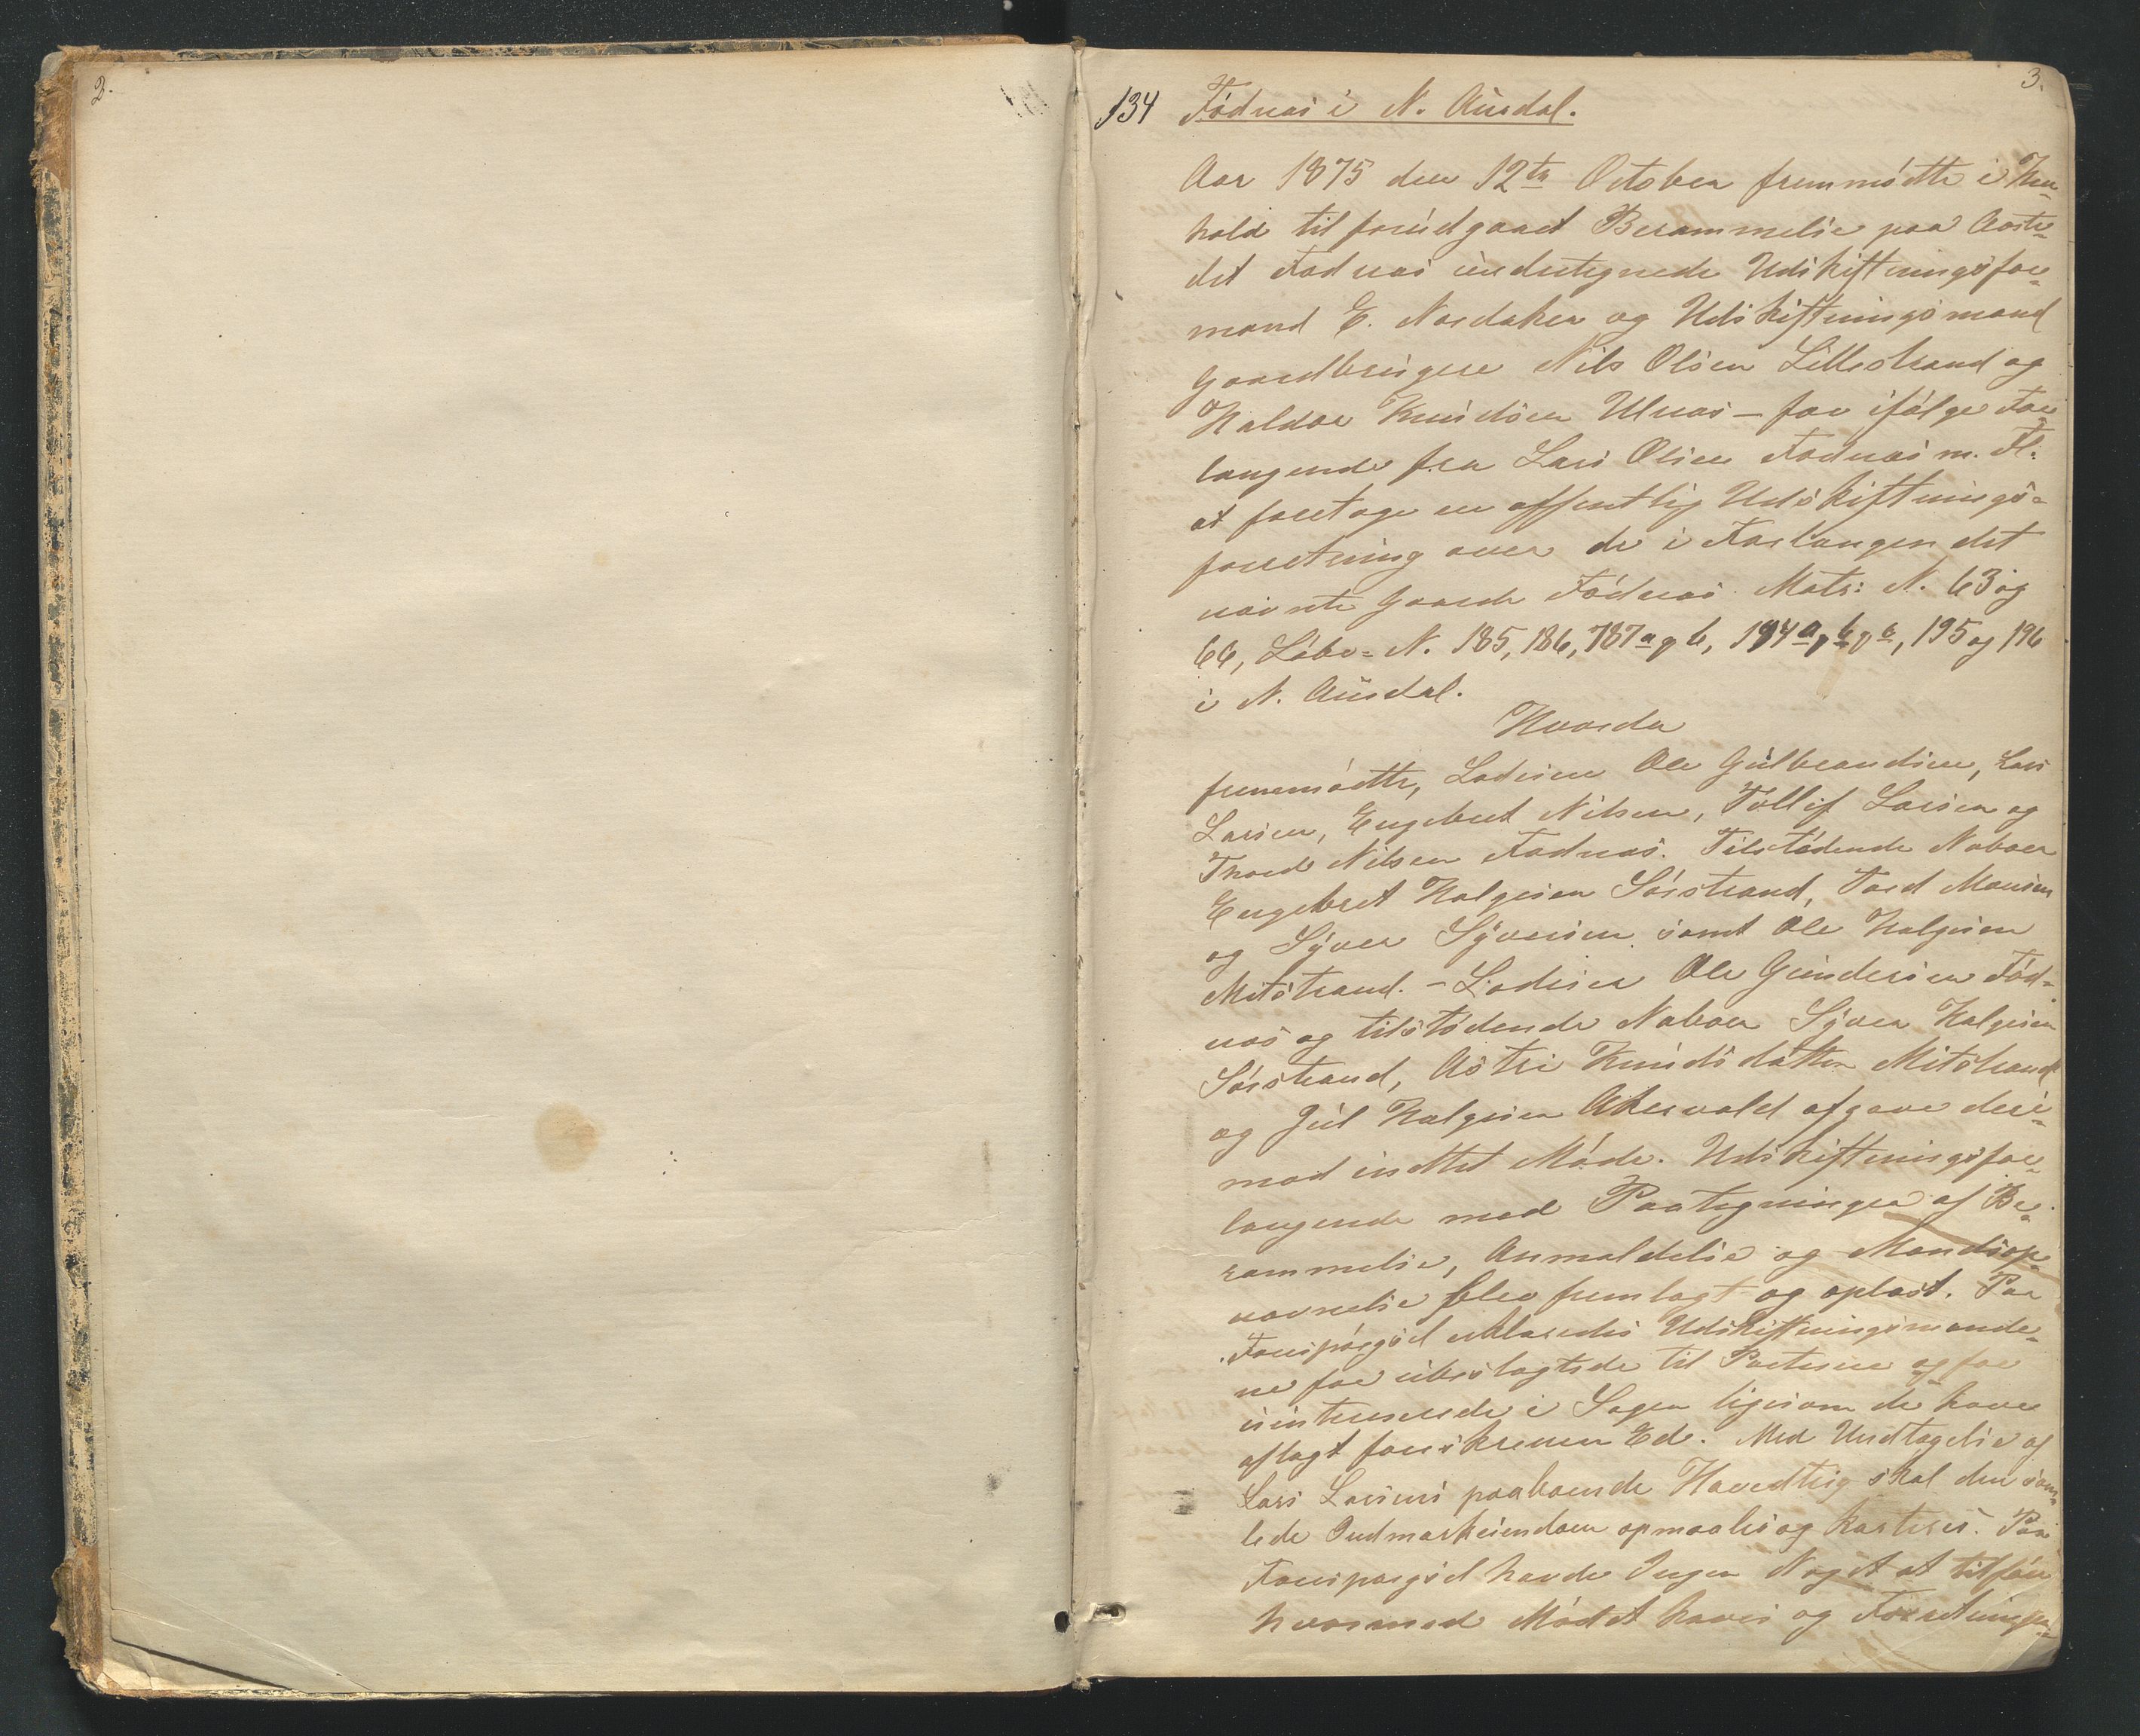 2.
3.
134 Födnæs i N. Aurdal.
Aar 1875 den 12te October fremmödte i Hen-
hold til forudgaaet Berammelse paa Aaste-
det Fødnæs undertegnede Udskiftningsfor-
mand E. Nordaker og Udskiftningsmænd
Gaardbrugere Nils Olsen Lillestrand og
Haldor Knudsen Ulnæs – for ifølge For-
langende fra Lars Olsen Fødnæs m. Fl.
at foretage en offentlig Udskiftnings-
forretning over de i Forlangendet
nævnte Gaarde Födnæs Matr: N. 63 og
66, Löbe-N. 185, 186, 187a og b, 194a, b og c, 195 og 196
i N. Aurdal.
Hvorda
fremmödte, Lodeiere Ole Gulbrandsen, Lars
Larsen, Engebret Nilsen, Tollif Larsen og
Thord Nilsen Fødnæs. Tilstödende Naboer
Engebret Halgesen Sörstrand, Tord Monsen
og Syver Syversen samt Ole Halgesen
Mitstrand. – Lodeier Ole Gundersen Fød-
næs og tilstødende Naboer Syver Halgesen
Sörstrand, Astri Knudsdatter Mitstrand
og Jul Halgesen Akervold afgave deri-
mod intet Möde. Udskiftningsfor-
langende med Paategninger af Be-
rammelse, Anmeldelse og Mandsop-
nævnelse blev fremlagt og oplæst. Paa
Forespörgsel erklæredes Udskiftningsmænde-
ne for ubeslægtede til Parterne og for
uinteresserede i Sagen ligesom de have
aflagt foreskreven Ed. Med Undtagelse af
Lars Larsens paaboende Havedteig skal den sam-
lede Indmarkeiendom opmaales og karteres. Paa
Forespørgsel havde Ingen Noget at tilføre
hvormed Mödet hæves og Forretningen